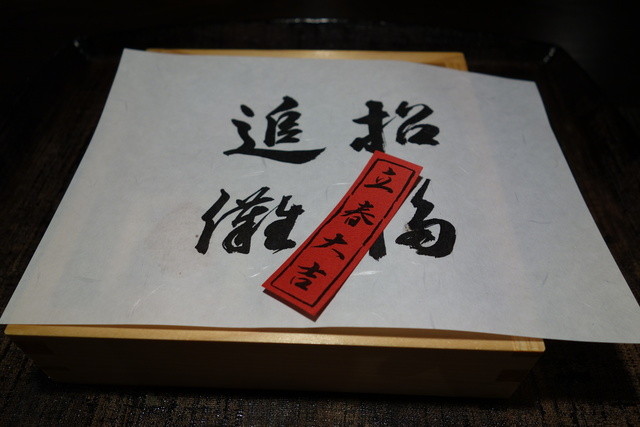 招福
追儺
立春大吉